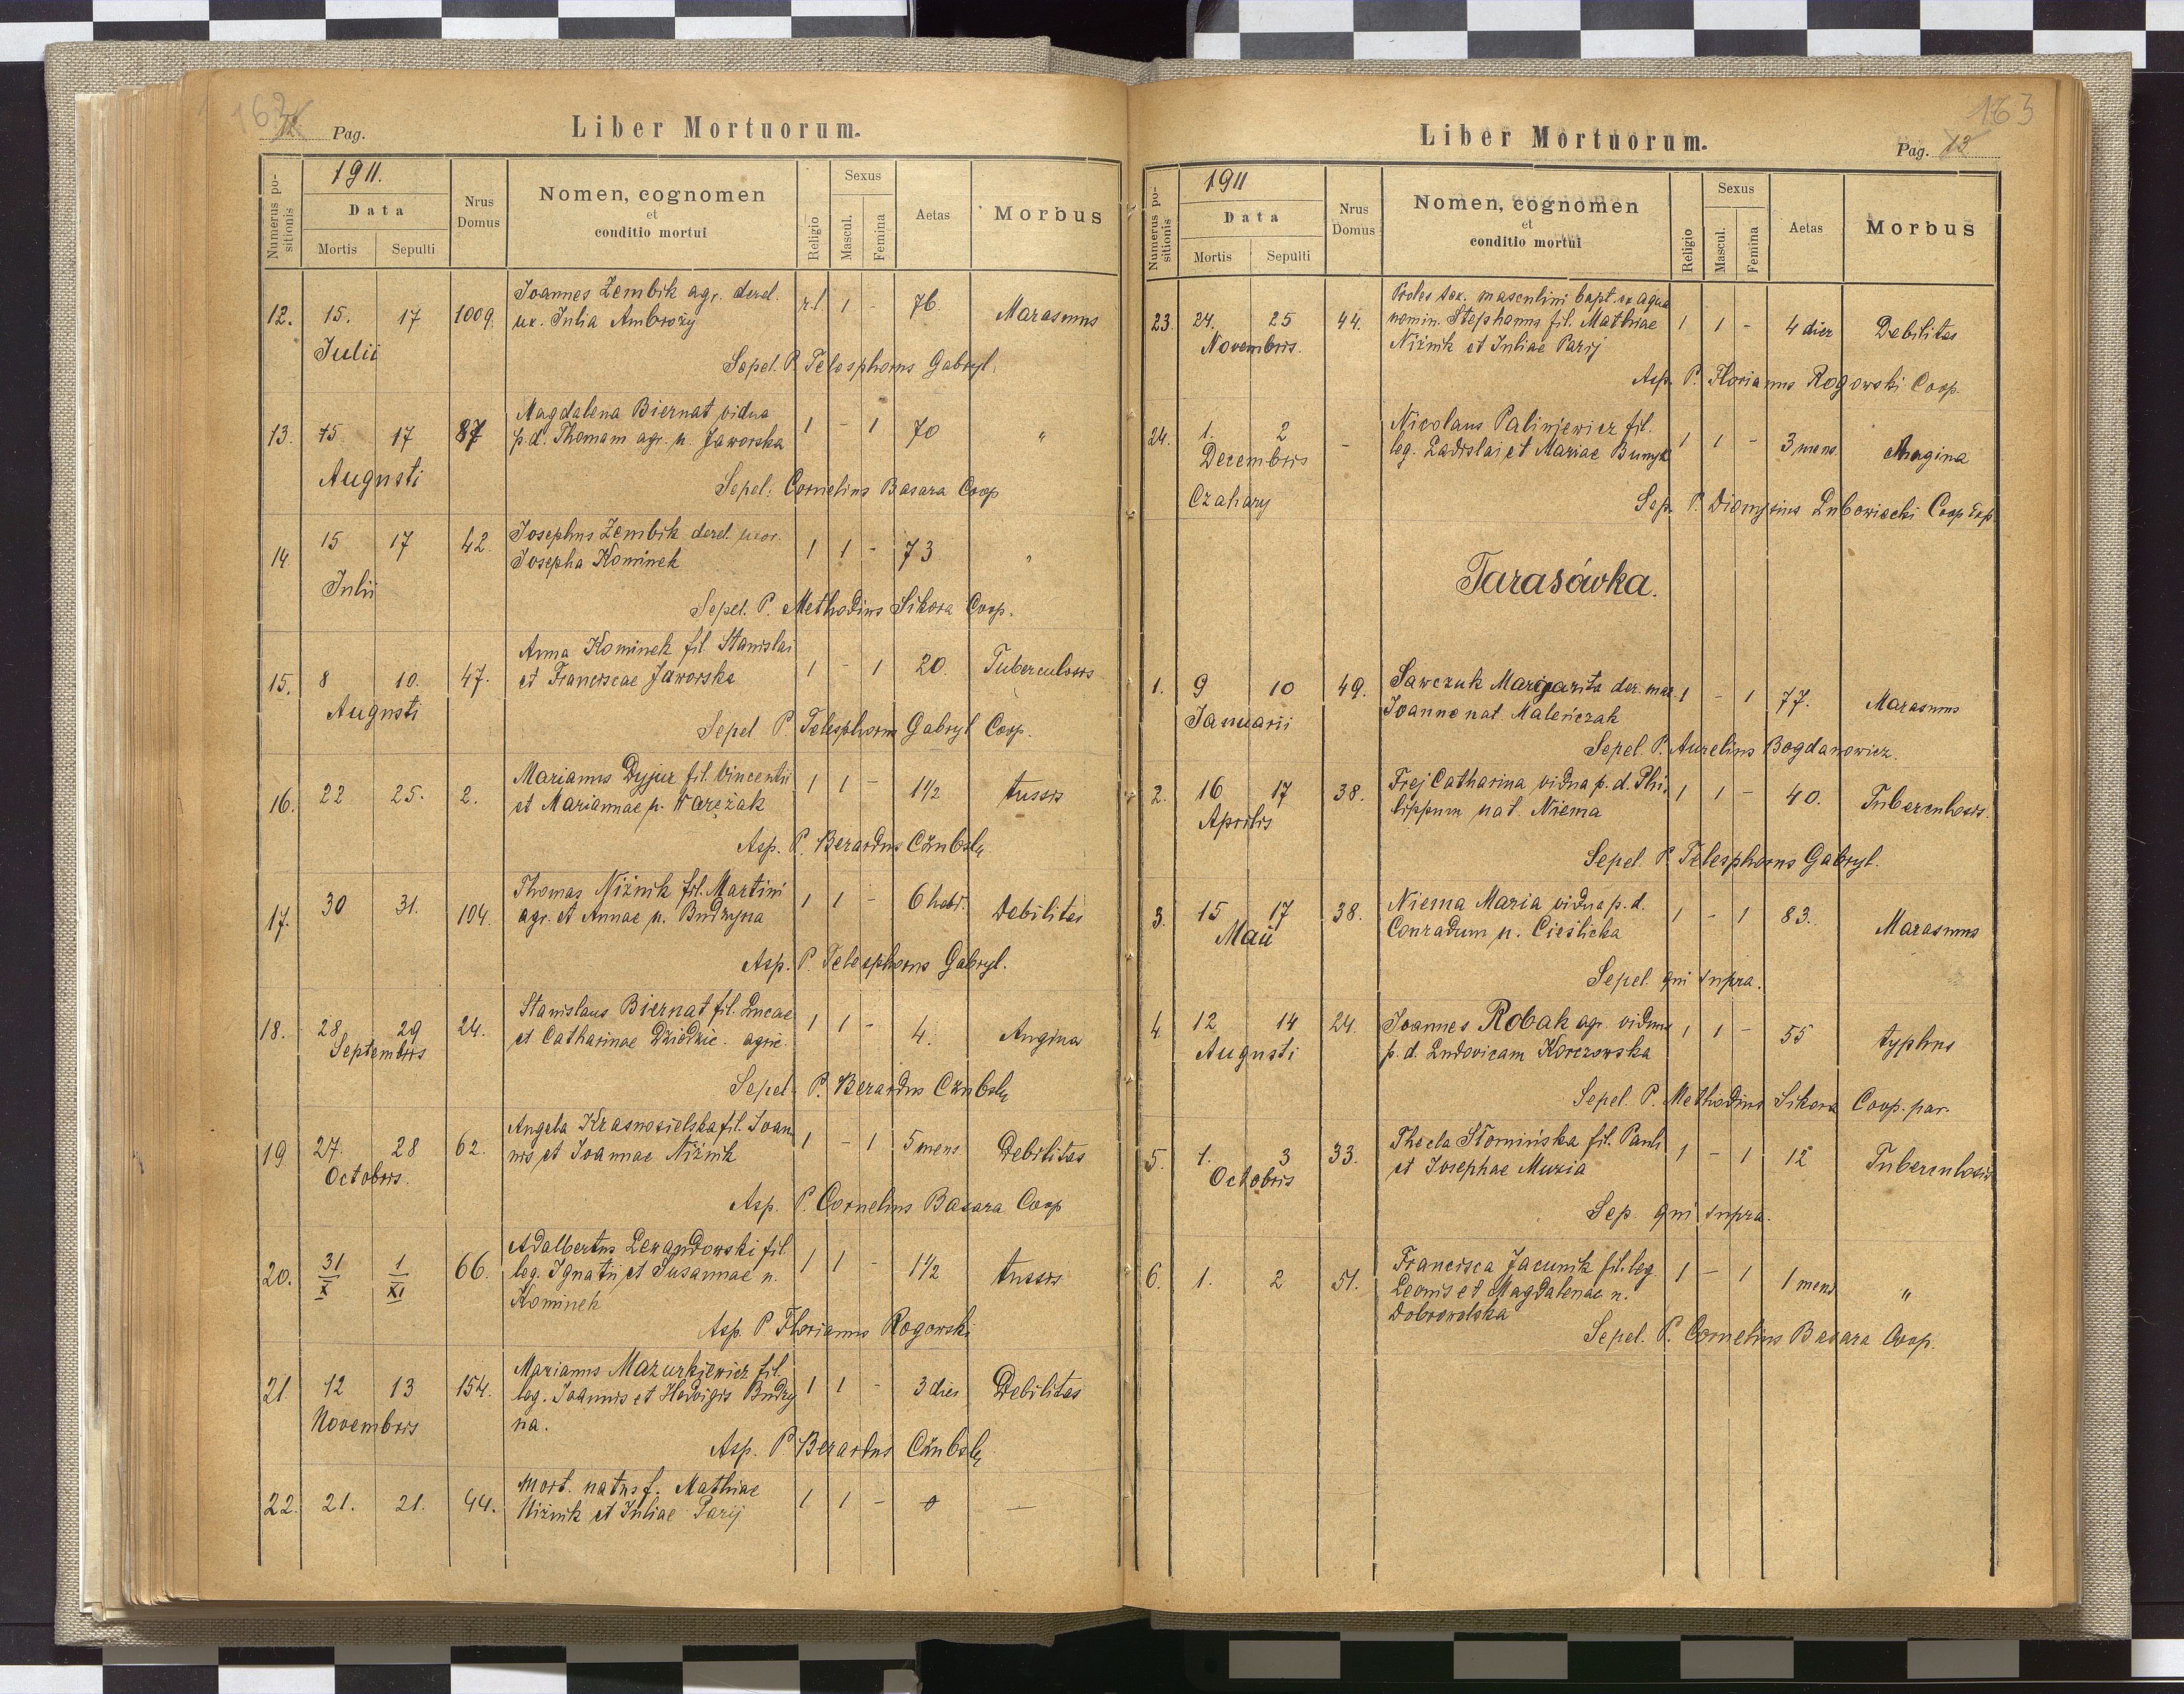 162
12 Pag.
Liber Mortuorum.
Numerus positionis
1911.
Data
Mortis Sepulti
Nrus Domus
Nomen, cognomen
et
conditio mortui
Religio
Sexus
Mascul. Femina
Aetas
Morbus
12. 15. 17 1009. Joannes Zembik agr. derel. r.l. 1 - 76 Marasmus
Julii ux. Julia Ambroży
Sepel. P. Telesphorus Gabryl.
13. 15 17 87 Magdalena Biernat vidua 1 - 1 70 "
p.d. Thomam agr. n. Jaworska
Augusti
Sepel: Cornelius Basara Coop
14 15 17 42. Josephus Zembik derel. uxor. 1 1 - 73 "
Josepha Kominek
Julii
Sepel. P. Methodius Sikora Coop.
15. 8 10. 47. Anna Kominek fil. Stanislai 1 - 1 20. Tuberculosis
et Franciscae Jaworska
Augusti
Sepel P. Telesphorus Gabryl Coop.
16. 22 25. 2. Marianus Dyjur fil. Vincentii 1 1 - 1 1/2 tussis
et Mariannae n. Warężak
Asp. P. Berardus
17. 30 31. 104. Thomas Niżnik fil. Martini 1 1 - 6 hebd. Debilitas
agr. et Annae n. Budzyna
Asp. P. Telesphorus Gabryl.
18. 28 29 24. Stanislaus Biernat fil. Lucae 1 1 - 4. Angina
Septembris et Catharinae Dziedzic. agric.
Sepel. P. Berardus
19 27. 28 62. Angela Krasnosielska fil. Joan 1 - 1 5 mens. Debilitas
nis et Joannae Niżnik
Octobris.
Asp. P. Cornelius Basara Coop
20. 31/X 1/XI 66. Adalbertus Lewandowski fil. 1 1 - 1 1/2 tussis
leg. Ignatii et Susannae n.
Kominek
Asp. P Florianus Rogowski
21. 12 13 154. Marianus Mazurkiewicz fil. 1 1 - 3 dies Debilitas
leg. Joannis et Hedvigis Budzy
na.
Novembris
Asp. P Berardus
22. 21. 21. 44. Mort. natus f. Mathiae 1 1 - 0 —
Niżnik et Juliae Parij
163
Liber Mortuorum.
Pag. 13
Numerus positionis
1911
Data
Mortis Sepulti
Nrus Domus
Nomen, cognomen
et
conditio mortui
Religio
Sexus
Mascul. Femina
Aetas
Morbus
23. 24. 25 44. Proles sex. masculini bapt. ex aqua 1 1 - 4 dier Debilitas
nomin. Stephanus fil. Mathiae
Niżnik et Juliae Parij
Novembris.
Asp. P. Florianus Rogowski Coop.
24. 1. 2 - Nicolaus Palinjewicz fil. 1 1 - 3 mens. Angina
leg. Ladislai et Mariae Bunyk
Decembris
Czahary
Sep. P. Dionysius Lubowiecki Coop Exp
Tarasówka.
1. 9 10 49. Sawczuk Margarita der. mar. 1 - 1 77. Marasmus
Joanne nat. Maleńczak
Januarii
Sepel. P. Aurelius Bogdanowicz.
2. 16 17 38. Frej Catharina vidua p.d. Phi- 1 1 - 40. Tuberculosis.
lippum nat. Niema
Aprilis
Sepel. P. Telesphorus Gabryl.
3. 15 17 38. Niema Maria vidua p.d. 1 - 1 83. Marasmus
Conradum n. Cieślicka
Maii
Sepel. qui supra.
4 12 14 24. Joannes Robak agr. viduus 1 1 - 55 typhus
p.d. Ludovicam Korczowska
Augusti
Sepel. P. Methodius Sikora Coop. par.
5. 1. 3 33. Thecla Słomińska fil. Pauli 1 - 1 12 Tuberculosis
et Josephae Muzia
Octobris
Sep. qui supra.
6. 1. 2 51. Francisca Jacunik fil. leg. 1 - 1 1 mens "
Leonis et Magdalenae n.
Dobrowolska
Sepel. P. Cornelius Basara Coop.